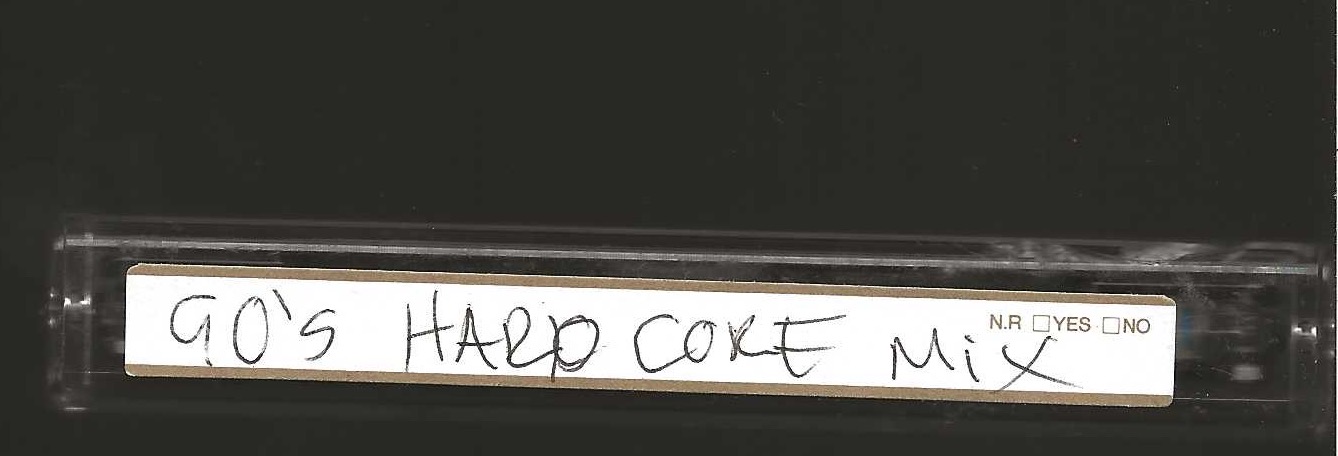 90's HARD CORE MiX
N.R □YES □NO